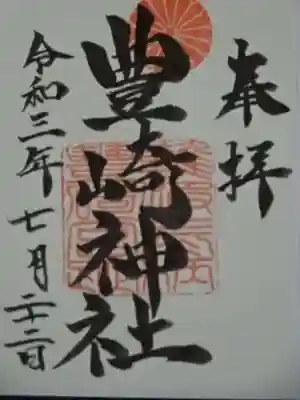 奉拝
豊崎神社
令和三年七月二十二日